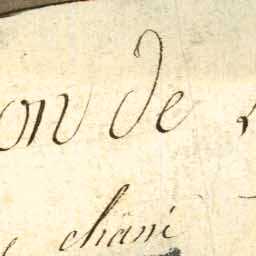 on de
chāni